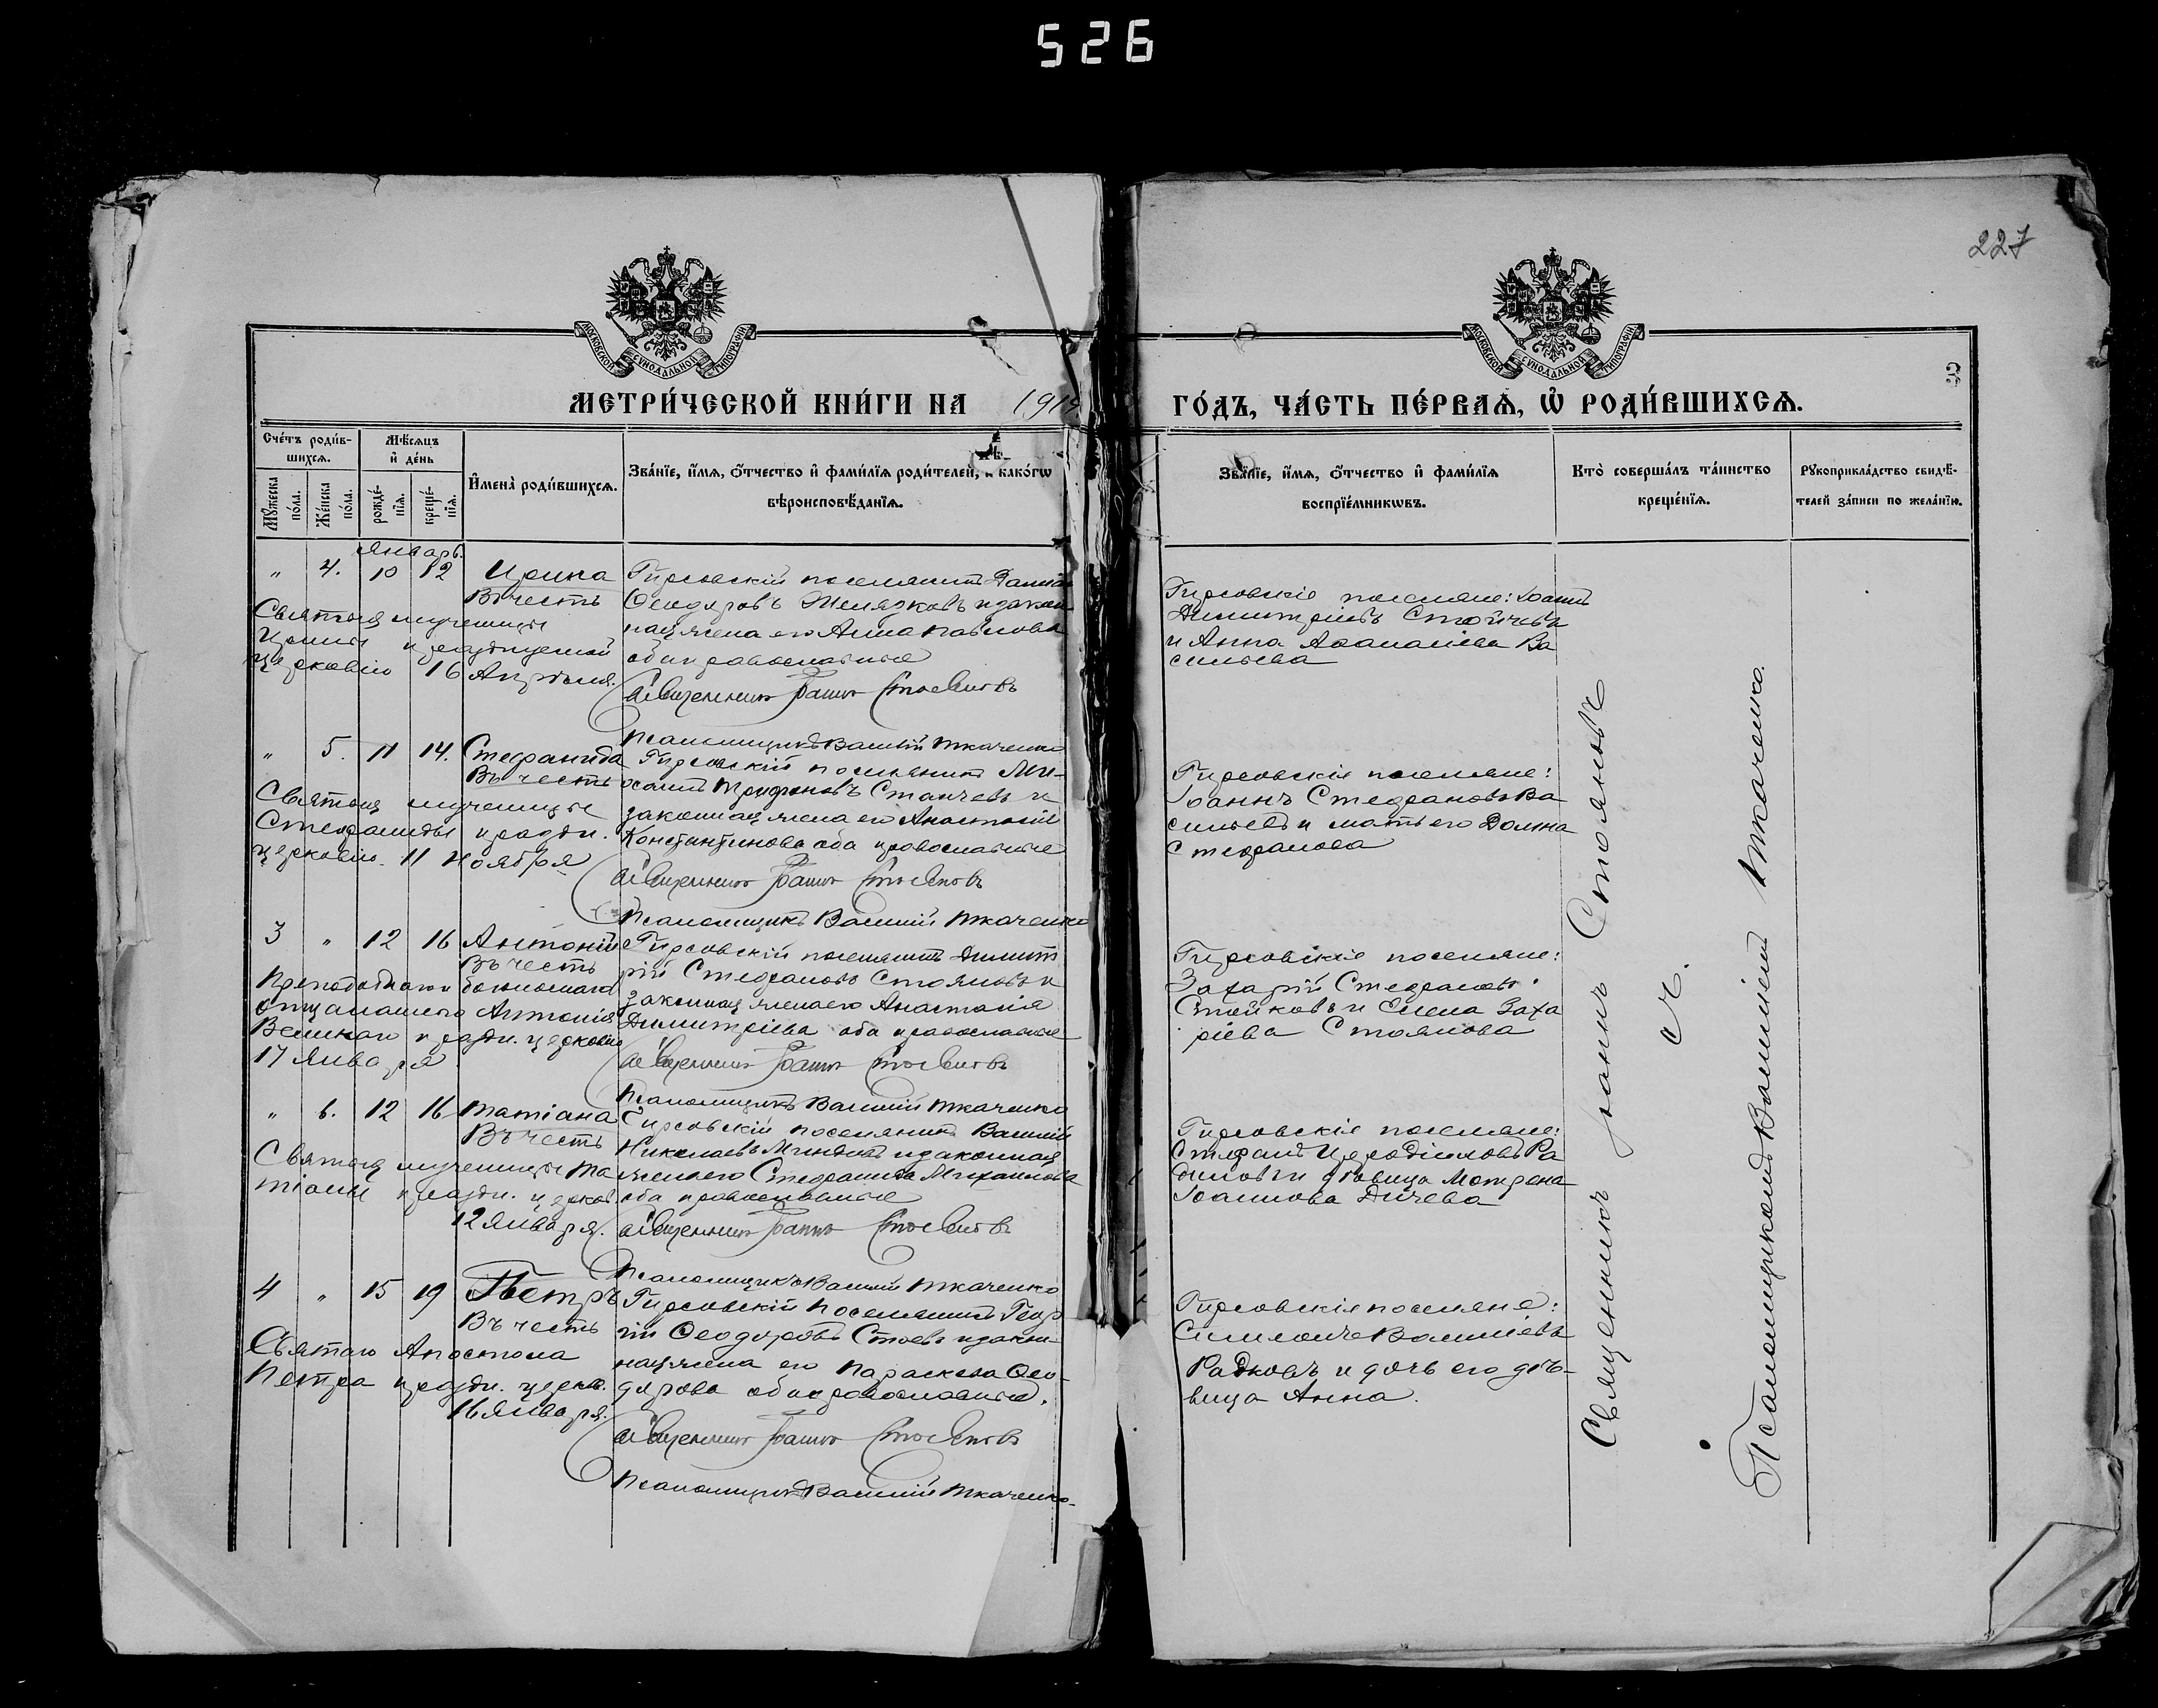 526
227
МОСКОВСКОЙ СУНОДАЛЬНОЙ ТИПОГРАФІИ
МОСКОВСКОЙ СУНОДАЛЬНОЙ ТИПОГРАФІИ
3
МЕТРИ́ЧЕСКОЙ КНИ́ГИ НА 191
ГО́ДЪ, ЧА́СТЬ ПЕ́РВАѦ, Ѡ РОДИ́ВШИХСѦ.
Сче́тъ роди́в-
шихсѧ.
Мѣ́сѧцъ
и҆ де́нь
Мꙋ́жеска по́ла.
Же́нска по́ла.
рожде́-нїѧ.
креще́-нїѧ.
И҆мена̀ роди́вшихсѧ.
Зва́нїе, и҆́мѧ, ѻ҆́тчество и҆ фами́лїѧ роди́телей, и҆ како́гѡ
вѣроисповѣ́данїѧ.
Зва́нїе, и҆́мѧ, ѻ҆́тчество и҆ фами́лїѧ
воспрїе́мникѡвъ.
Кто̀ соверша́лъ та́инство
креще́нїѧ.
Рꙋкоприкла́дство свидѣ́-
телей за́писи по жела́нїю.
Январь.
" 4. 10 12 Ирина
Въ честь
Святыя мученицы
Ирины празднуемой
церковію 16 Апрѣля.
Гирсовскій поселянинъ Даміа
Ѳеодоровъ Желязковъ и закон
ная жена его Анна Павлова
оба православные
Священникъ Іоаннъ Стояновъ
Псаломщикъ Василій Ткаченко
Гирсовскіе поселяне: Іоаннъ
Димитріевъ Стойчевъ
и Анна Аѳанасіева Ва
сильева
" 5. 11 14. Стефанида
Въ честь
Святыя мученицы
Стефаниды праздн.
церковію. 11 Ноября
Гирсовскій поселянинъ
Трифоновъ Станчевъ и
законная жена его Анастасія
Константинова оба православные
Священникъ Іоаннъ Стояновъ
Псаломщикъ Василій Ткаченко
Гирсовскіе поселяне:
Іоаннъ Стефановъ Ва
сильевъ и мать его Домна
Стефанова
3 " 12 16 Антоній
Въ честь
Преподобнаго и богоноснаго
отца нашего Антонія
Великаго праздн. церковію
17 Января
Гирсовскій поселянинъ Димит
рій Стефановъ Стояновъ и
законная жена его Анастасія
Димитріева оба православные
Священникъ Іоаннъ Стояновъ
Псаломщикъ Василій Ткаченко
Гирсовскіе поселяне:
Захарій Стефановъ
Стойковъ и Елена Заха
ріева Стоянова
" 6. 12 16 Татіана
Въ честь
Святыя мученицы Та
тіаны праздн. церков.
12 Января.
Гирсовскій поселянинъ Василій
Николаевъ и законная
жена его Стефанида Михаилова
оба православные
Священникъ Іоаннъ Стояновъ
Псаломщикъ Василій Ткаченко
Гирсовскіе поселяне:
Стефанъ Иродіоновъ Ра
диловъ и дѣвица
Іоаннова Дичева
4 " 15 19 Петръ
Въ честь
Святаго Апостола
Петра праздн. церков.
16 Января.
Гирсовскій поселянинъ Геор
гій Ѳеодоровъ Стоевъ и закон
ная жена его Параскева Ѳео-
дорова оба православные.
Священникъ Іоаннъ Стояновъ
Псаломщикъ Василій Ткаченко.
Гирсовскіе поселяне:
Симеонъ Василіевъ
Радковъ и дочь его дѣ-
вица Анна.
Священникъ Іоаннъ Стояновъ
съ
Псаломщикомъ Василіемъ Ткаченко.